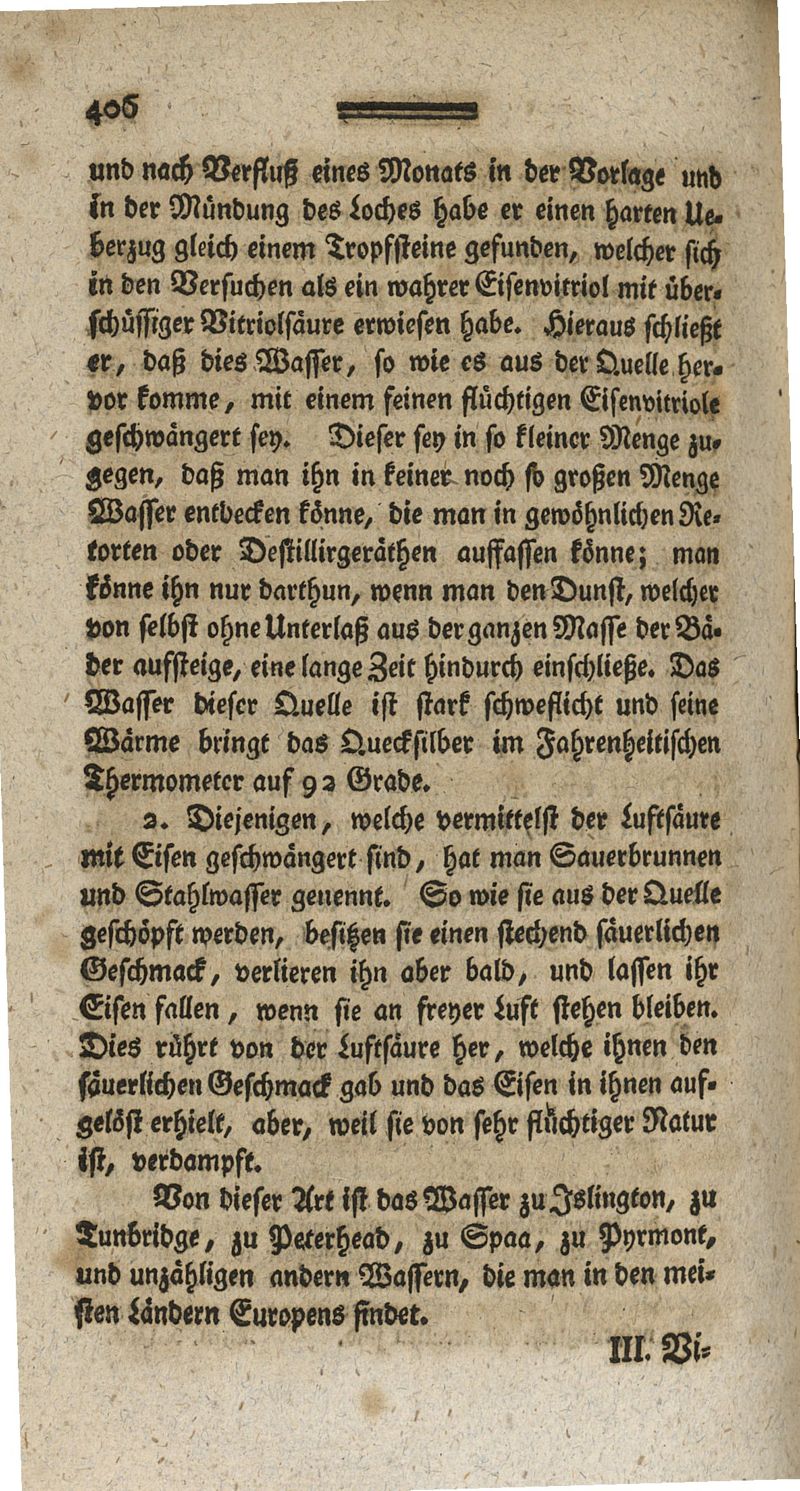 406
und nach Verfluß eines Monats in der Vorlage und
in der Mündung des Loches habe er einen harten Ue-
berzug gleich einem Tropfsteine gefunden, welcher sich
in den Versuchen als ein wahrer Eisenvitriol mit über-
schüssiger Vitriolsäure erwiesen habe. Hieraus schließt
er, daß dies Wasser, so wie es aus der Quelle her-
vor komme, mit einem feinen flüchtigen Eisenvitriole
geschwängert sey. Dieser sey in so kleiner Menge zu-
gegen, daß man ihn in keiner noch so großen Menge
Wasser entdecken könne, die man in gewöhnlichen Re-
torten oder Destillirgeräthen auffassen könne; man
könne ihn nur darthun, wenn man den Dunst, welcher
von selbst ohne Unterlaß aus der ganzen Masse der Bä-
der aufsteige, eine lange Zeit hindurch einschließe. Das
Wasser dieser Quelle ist stark schweflicht und seine
Wärme bringt das Quecksilber im Fahrenheitischen
Thermometer auf 92 Grade.
2. Diejenigen, welche vermittelst der Luftsäure
mit Eisen geschwängert sind, hat man Sauerbrunnen
und Stahlwasser genennt. So wie sie aus der Quelle
geschöpft werden, besitzen sie einen stechend säuerlichen
Geschmack, verlieren ihn aber bald, und lassen ihr
Eisen fallen, wenn sie an freyer Luft stehen bleiben.
Dies rührt von der Luftsäure her, welche ihnen den
säuerlichen Geschmack gab und das Eisen in ihnen auf-
gelöst erhielt, aber, weil sie von sehr flüchtiger Natur
ist, verdampft.
Von dieser Art ist das Wasser zu Islington, zu
Tunbridge, zu Peterhead, zu Spaa, zu Pyrmont,
und unzähligen andern Wassern, die man in den mei-
sten Ländern Europens findet.
III. Vi-